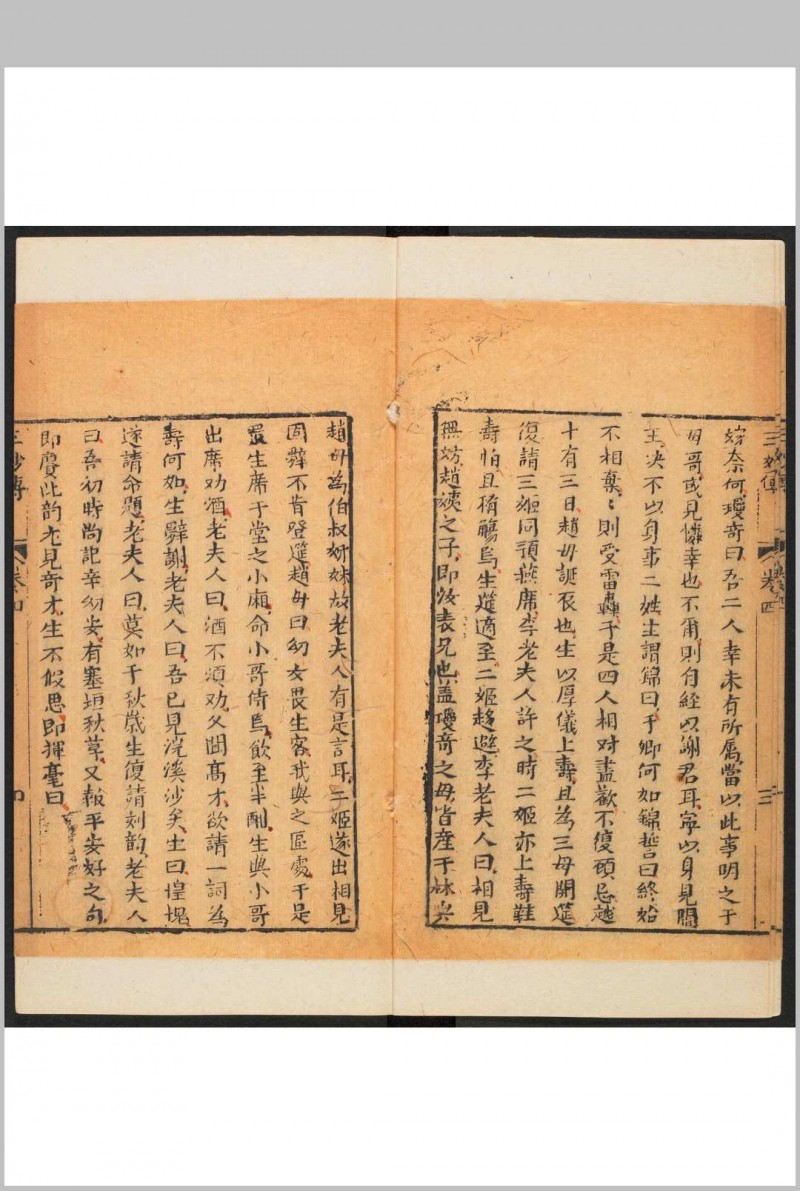 嫁奈何瓊奇曰吾二人幸未有所属當以此事明之于
母哥或見憐幸也不爾則自經以謝君耳寧以身見閻
王决不以身事二姓生謂錦曰于卿何如錦誓曰終始
不相棄〻則受雷轟于是四人相对盡歡不復顧忌越
十有三日趙母誕辰也生以厚儀上壽且為三母開筵
復請三姬同預燕席李老夫人許之時二姬亦上壽鞋
壽怕且稱觴焉生筵適至二姬趍避李老夫人曰相見
無妨趙姨之子即汝表兄也盖瓊奇之母皆産于林與
三妙傳
卷四
三
趙母為伯叔姊妹故老夫人有是言耳二姬遂出相見
固辤不肯登筵趙母曰幼女畏生客我與之區處于是
置生席于堂之小廂命小哥侍焉飲至半酣生與小哥
出席劝酒老夫人曰酒不須劝久聞髙才欲請一詞為
壽何如生辤謝老夫人曰吾已見浣溪沙矣生曰惶愧
遂請命題老夫人曰莫如千秋歲生復請刻韵老夫人
曰吾初時尚記辛幼安有塞垣秋草又報平安好之句
即賡此韵尤見奇才生不假思即揮毫曰
三妙傳
卷四
四